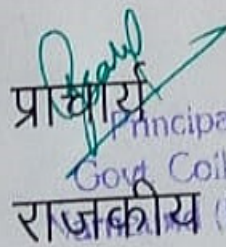 प्राचार्य
Principa
Govt Coll
राजकीय